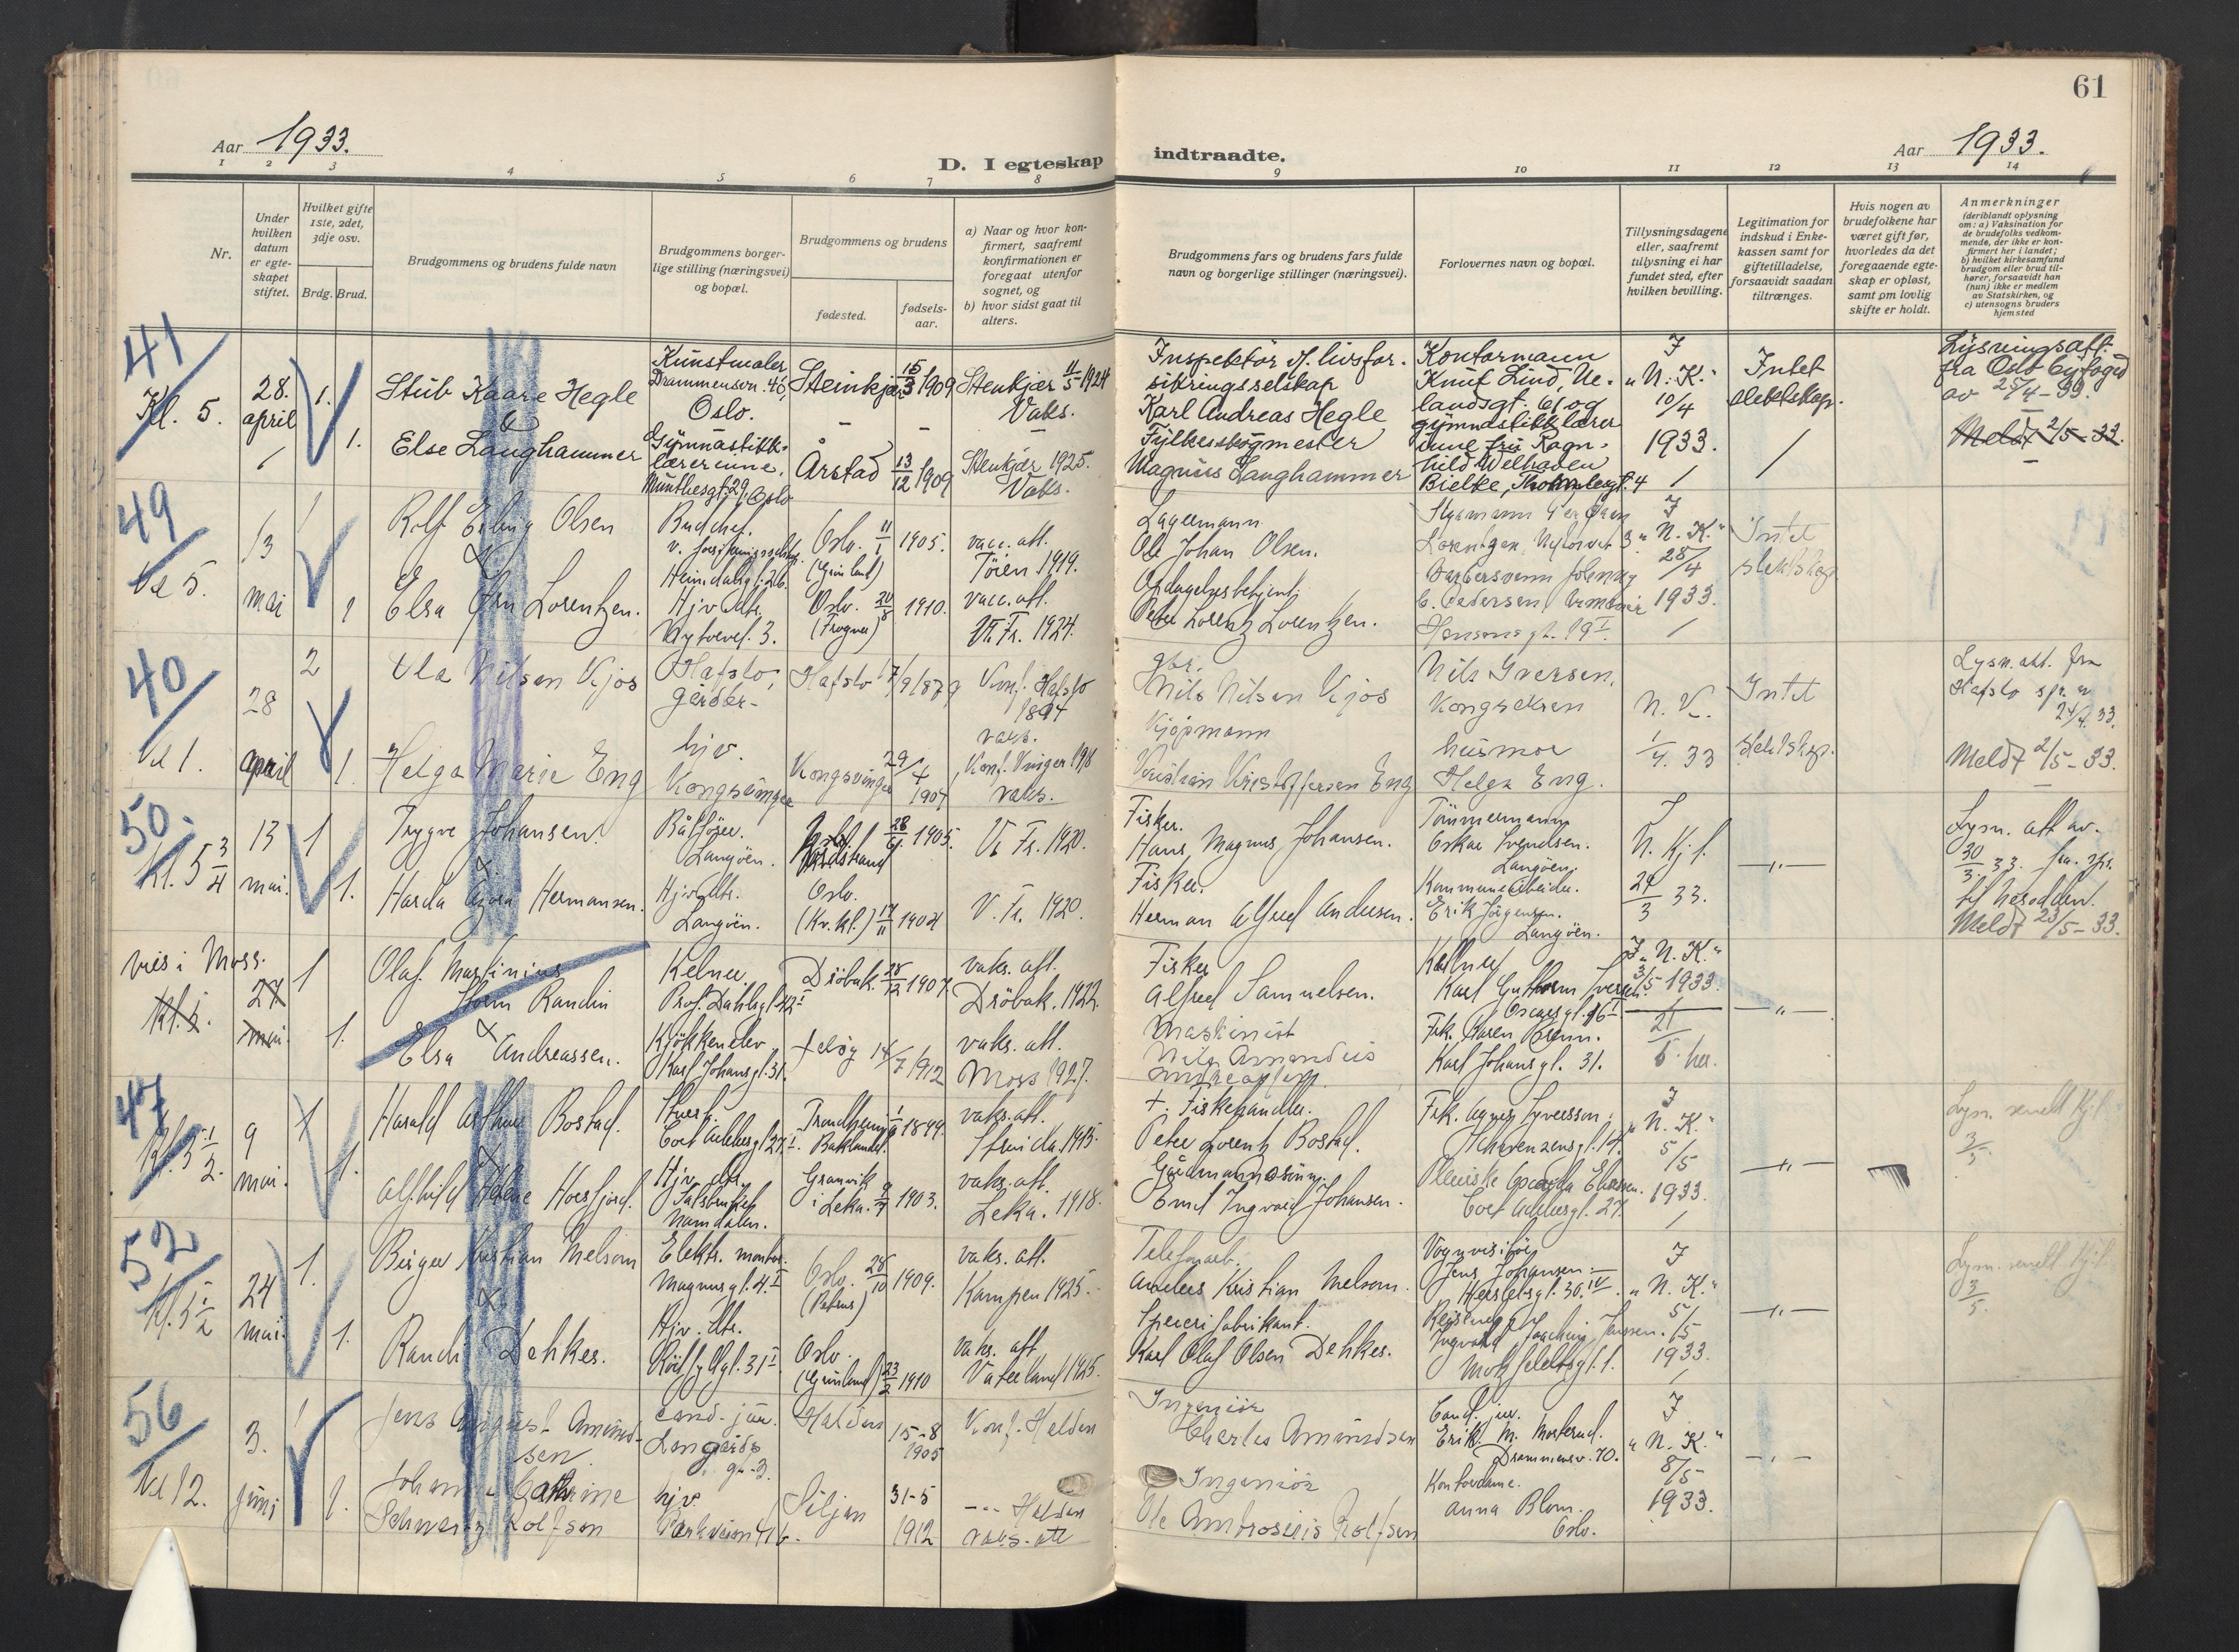 61
Aar 1933.
D. I egteskap indtraadte.
Aar 1933.
1 2 3 4 5 6 7 8 9 10 11 12 13 14
Nr.
Under
hvilken
datum
er egte-
skapet
stiftet.
Hvilket gifte
1ste, 2det,
3dje osv.
Brdg. Brud.
Brudgommens og brudens fulde navn
Brudgommens borger-
lige stilling (næringsvei)
og bopæl.
Brudgommens og brudens
fødested.
fødsels-
aar.
a) Naar og hvor kon-
firmert, saafremt
konfirmationen er
foregaat utenfor
sognet, og
b) hvor sidst gaat til
alters.
Brudgommens fars og brudens fars fulde
navn og borgerlige stillinger (næringsvei).
Forlovernes navn og bopæl.
Tillysningsdagene
eller, saafremt
tillysning ei har
fundet sted, efter
hvilken bevilling.
Legitimation for
indskud i Enke-
kassen samt for
giftetilladelse,
forsaavidt saadan
tiltrænges.
Hvis nogen av
brudefolkene har
været gift før,
hvorledes da det
foregaaende egte-
skap er opløst,
samt om lovlig
skifte er holdt.
Anmerkninger
(deriblandt oplysning
om: a) Vaksination for
de brudefolks vedkom-
mende, der ikke er kon-
firmert her i landet;
b) hvilket kirkesamfund
brudgom eller brud til-
hører, forsaavidt han
(hun) ikke er medlem
av Statskirken, og
c) utensogns bruders
hjemsted
41
Kl. 5.
28.
april
1.
1.
Stub Kaare Hegle
&
Else Langhammer
Kunstmaler
Drammensvn. 46,
Oslo.
Gymnastikk-
lærerinne.
Munthesgt. 29, Oslo
Steinkjær 15/3 1909
Årstad 13/12 1909
Stenkjær 11/5 1924
Vaks.
Stenkjær 1925.
Vaks.
Inspektør i livsfor-
sikringsselskap
Karl Andreas Hegle
Fylkesskogmester
Magnus Langhammer
Kontormann
Knut Lind, Ue-
landsgt. 61, og
gymnastikklærer
inne fru Ragn-
hild Welhaven
Bielke, 4
I
"N. K."
10/4
1933.
Intet
slektskap.
Lysningsatt.
fra Oslo byfogd
av 25/4-33.
Meldt 2/5-33.
49
Kl 5.
13
mai
1
1
Rolf Erling Olsen
&
Elsa Lorentzen.
Budchef.
Heimdalsgt. 26.
Hjv. dtr.
Nytorvet. 3.
Oslo. 11/1 1905.
(Grønland)
Oslo. 20/8 1910.
(Frogner)
vacc. att.
Tøien 1919.
vacc. att.
V. Fr. 1924.
Lagermann
Ole Johan Olsen.
Opdagelsesbetjent.
Peder Lorentz Lorentzen.
Lorentzen, Nytorvet 3
C. Pedersen,
Hansens gt. 19 I.
I
"N. K."
28/4
1933.
Intet
slektskap
40
Kl 1.
28
april
2
1.
Ola Nilsen Kjos
Helga Marie Eng
Hafslo,
gårdbr-
hjv.
Kongsvinger
Hafslo 7/9 1879
Kongsvinger 29/4 1907
Konf. Hafslo
1894
vaks.
Konf. Vinger 1918
vaks.
gbr.
Nils Nilsen Kjos
Kjøpmann
Kristian Kristoffersen Eng
Nils Iversen,
husmor
Helga Eng.
N. K.
1/4. 33
Intet
slektskap.
Lysn. att. fra
Hafslo spr. av
24/4. 33.
Meldt 2/5-33.
50.
Kl. 5 3/4
13
mai.
1
1.
Trygve Johansen.
&
Harda Hermansen.
Båtfører.
Langøen.
Hjv. dtr.
Langøen.
28/6. 1905.
Oslo.
(Kv. kl.) 17/11 1904
V. Fr. 1920.
V. Fr. 1920.
Fisker.
Hans Magnus Johansen.
Fisker.
Herman Alfred Andersen.
Tømmermann
Oskar Svendsen.
Langøen.
Kommunearbeider.
Erik Jørgensen.
Langøen.
I
N. Kj.
24/3 33.
—"—
Lysn. att av.
30/3. 33. fra. spr.
til Nesodden.
Meldt 23/5-33.
vies i Moss.
Kl. 5.
27
mai.
1
1.
Olaf Martinius
Randin
&
Elsa Andreassen.
Kelner.
Prof. Dahlsgt. 42 I
Kjøkkenelev
Karl Johansgt. 31.
Drøbak. 28/12 1907.
Jeløy 14/7 1912
vaks. att.
Drøbak. 1922.
vaks. att.
Moss 1927.
Fisker
Alfred Samuelsen.
Maskinist
Nils Amandus
Andreassen
Kellner
Karl Guthorm Iversen.
Oscarsgt. 16 I
Frk. Karen Blom.
Karl Johansgt. 31.
I "N. K."
3/5 1933.
—"—
47
Kl. 5 1/2.
9
mai.
1
1.
Harald Arthur Bostad.
&
Alfhild Helene Horsfjord.
Stuert.
Cort Adelersgt 27 I.
Hjv. dtr.
Salsbruket
Namdalen.
Trondheim 1/9 1899.
Baklandet.
Granvik
i Leka. 9/7 1903.
vaks. att.
Strinda. 1915.
vaks. att.
Leka. 1918.
†. Fiskehandler.
Peter Lorentz Bostad.
Emil Ingvald Johansen.
Frk. Agnes Syversson.
Cort Adelersgt. 27.
I
"N. K."
5/5
1933.
—"—
Lysn. sendt Kjl.
3/5.
52
Kl. 5 1/2
24
mai.
1.
1.
Birger Kristian Melsom
&
Randi Dehkes.
Elektr. montør.
Magnusgt. 4. I
Hjv. dtr.
31 I.
Oslo. 28/10 1909.
(Petrus)
Oslo.
(Grønland) 23/2 1910
vaks. att.
Kampen 1925.
vaks. att
Vaterland 1925.
Telefonarb.
Anders Kristian Melsom.
Speserifabrikant.
Karl Olaf Olsen Dehkes.
Vognvisitør
Jens Johansen.
Herslebsgt. 30. IV.
Ingvald Joachim Janssen.
Motzfeldtsgt. 1.
I
"N. K."
5/5
1933.
—"—
Lysn. sendt Kjl.
3/5.
56
Kl 12.
3.
juni
1
1.
Jens August Amund-
sen.
Johanne Cathrine
Schwartz Rolfsen
cand. jur.
Langaards
gt. 3.
hjv.
Parkveien 41 b.
Halden 15-8
1905
Siljan 31-5
1912
Konf. Halden
-"- Halden
vaks. att
Ingeniør
Charles Amundsen
Ingeniør
Ole Ambrosius Rolfsen
Cand. jur.
Erik. M. Mosterud.
Drammensv. 70.
Kontordame.
Anna Blom.
Oslo.
I
"N. K."
8/5
1933.
—"—